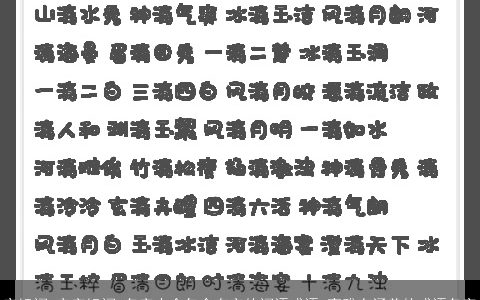 山清水秀 神清气爽 冰清玉洁 风清月朗 河
清海晏 眉清目秀 一清二楚 冰清玉润
一清二白 三清四白 风清月皎 源清流洁 政
清人和 冰清玉絜 风清月明 一清如水
河清难俟 竹清松瘦 扬清激浊 神清骨秀 清
清泠泠 玄清卉醴 四清六活 神清气朗
风清月白 玉清冰洁 河清海宴 澄清天下 冰
清玉粹 眉清目朗 时清海宴 十清九浊